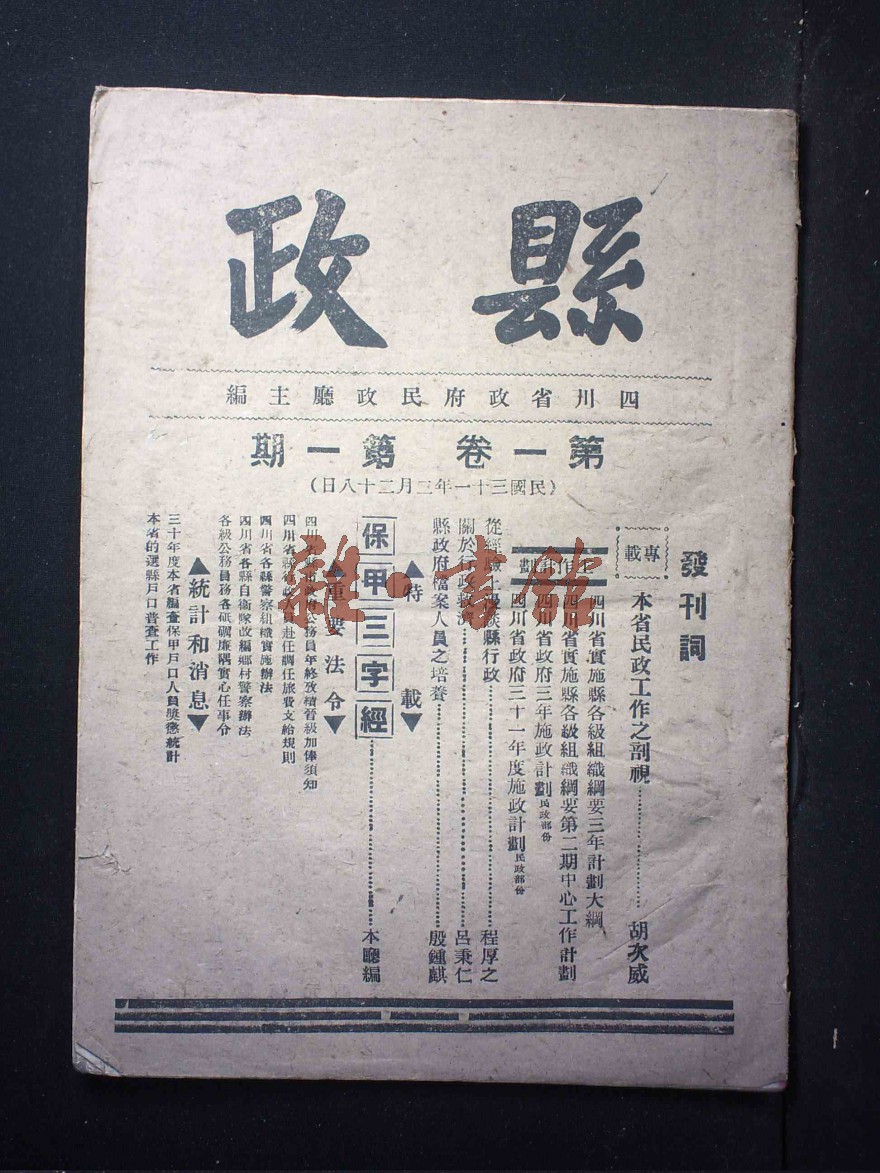 縣政
四川省政府民政廳主編
第一卷 第一期
(民國三十一年二月二十八日)
發刊詞
專載
本省民政工作之剖視 胡次威
工作計劃
四川省實施縣各級組織綱要三年計劃大綱
四川省實施縣各級組織綱要第二期中心工作計劃
四川省政府三年施政計劃民政部份
四川省政府三十一年度施政計劃民政部份
從經驗上漫談縣行政 程厚之
關於行政救濟 呂秉仁
縣政府檔案人員之培養 殷鍾麒
▲特載▼
保甲三字經 本廳編
▲重要法令▼
四川省縣市政府公務員年終攷績晉級加俸須知
四川省縣行政人員赴任調任旅費支給規則
四川省各縣警察組織實施辦法
四川省各縣自衛隊改編鄉村警察辦法
各級公務員務各砥礪廉隅實心任事令
▲統計和消息▼
三十年度本省編查保甲戶口人員獎懲統計
本省的選縣戶口普查工作
雜·書館